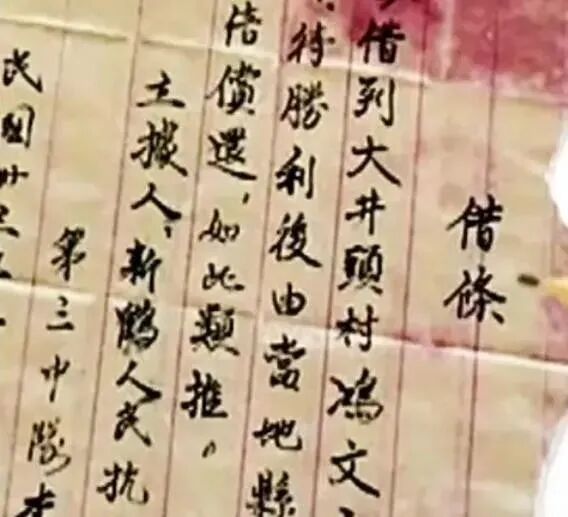 借條
借到大井頭村馮文
待勝利後由當地縣
借償還,如此類推。
立據人:新鶴人民抗
第三中隊李
民國卅